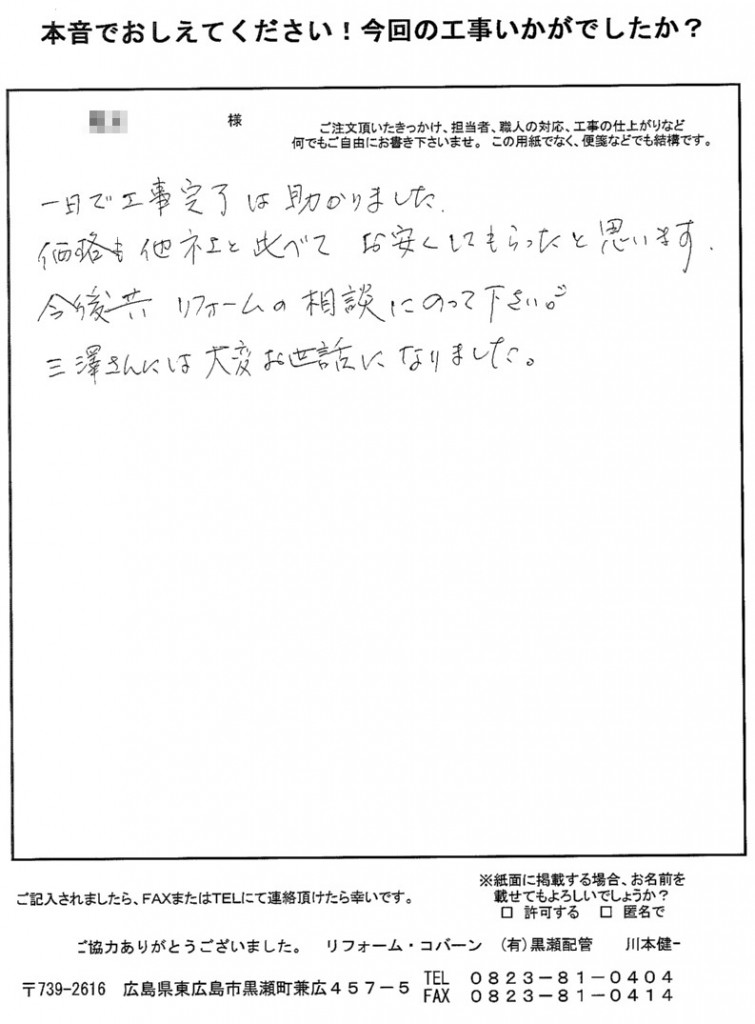 本音でおしえてください！今回の工事いかがでしたか？
様
ご注文頂いたきっかけ、担当者、職人の対応、工事の仕上がりなど
何でもご自由にお書き下さいませ。この用紙でなく、便箋などでも結構です。
一日で工事完了は助かりました.
価格も他社と比べて お安くしてもらったと思います.
今後共 リフォームの相談にのって下さい。
三澤さんには大変お世話になりました。
ご記入されましたら、FAXまたはTELにて連絡頂けたら幸いです。
※紙面に掲載する場合、お名前を
載せてもよろしいでしょうか？
□ 許可する □ 匿名で
ご協力ありがとうございました。 リフォーム・コバーン （有）黒瀬配管 川本健一
〒739-2616 広島県東広島市黒瀬町兼広４５７－５
TEL ０８２３－８１－０４０４
FAX ０８２３－８１－０４１４